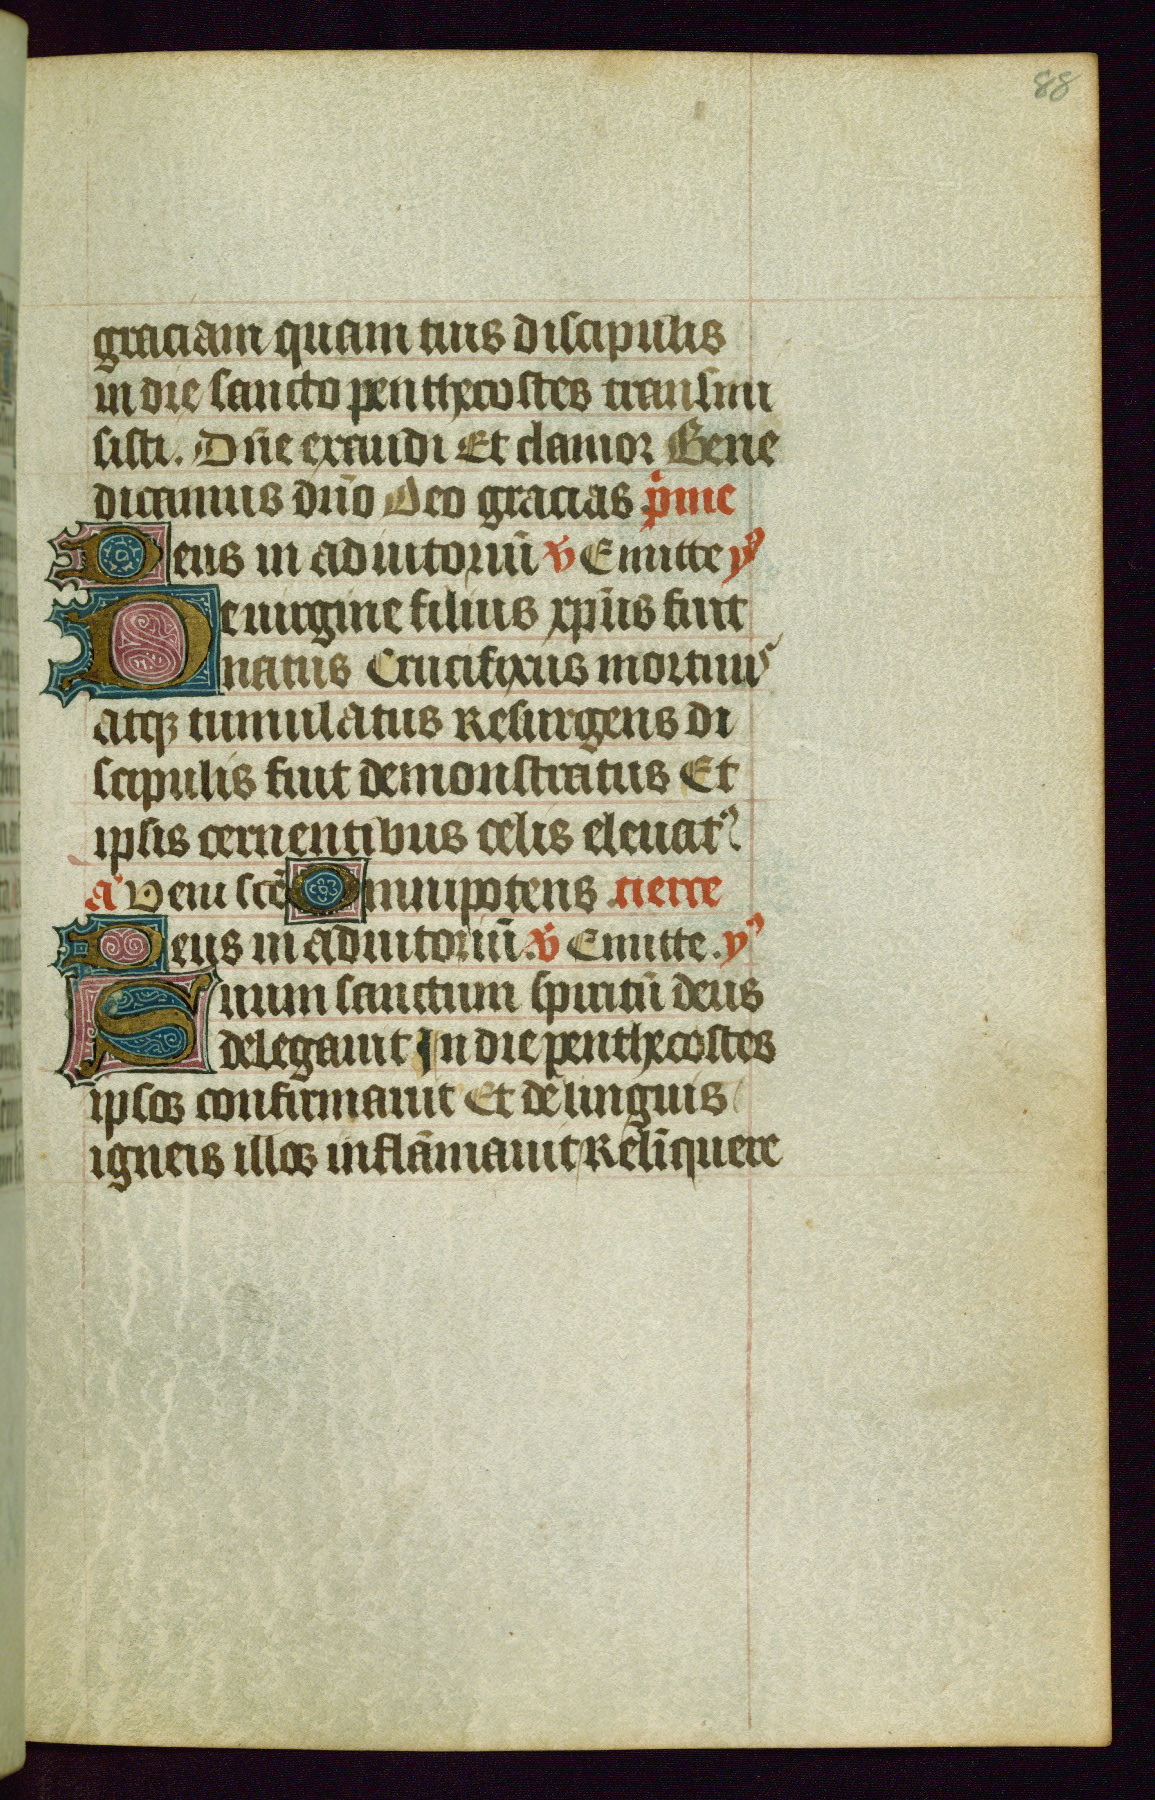 88
graciam quam tuis discipulis
in die sancto penthecostes transmi
sisti. Dñe exaudi Et clamor Bene
dicamus dño Deo gracias p̃me
Deus in adiutoriũ v̄ Emitte yᵒ
De virgine filius xp̃us fuit
natus Crucifixus mortuus
atqꝫ tumulatus Resurgens di
scipulis fuit demonstratus Et
ipsis cernentibus celis eleuatᵒ
aᵃ Veni scẽ Omnipotens tierce
Deus in adiutoriũ. v̄ Emitte. yᵒ
Suum sanctum spiritũ deus
delegauit In die penthecostes
ipsoꝝ confirmauit Et de linguis
igneis illoꝝ inflãmauit Relĩquere